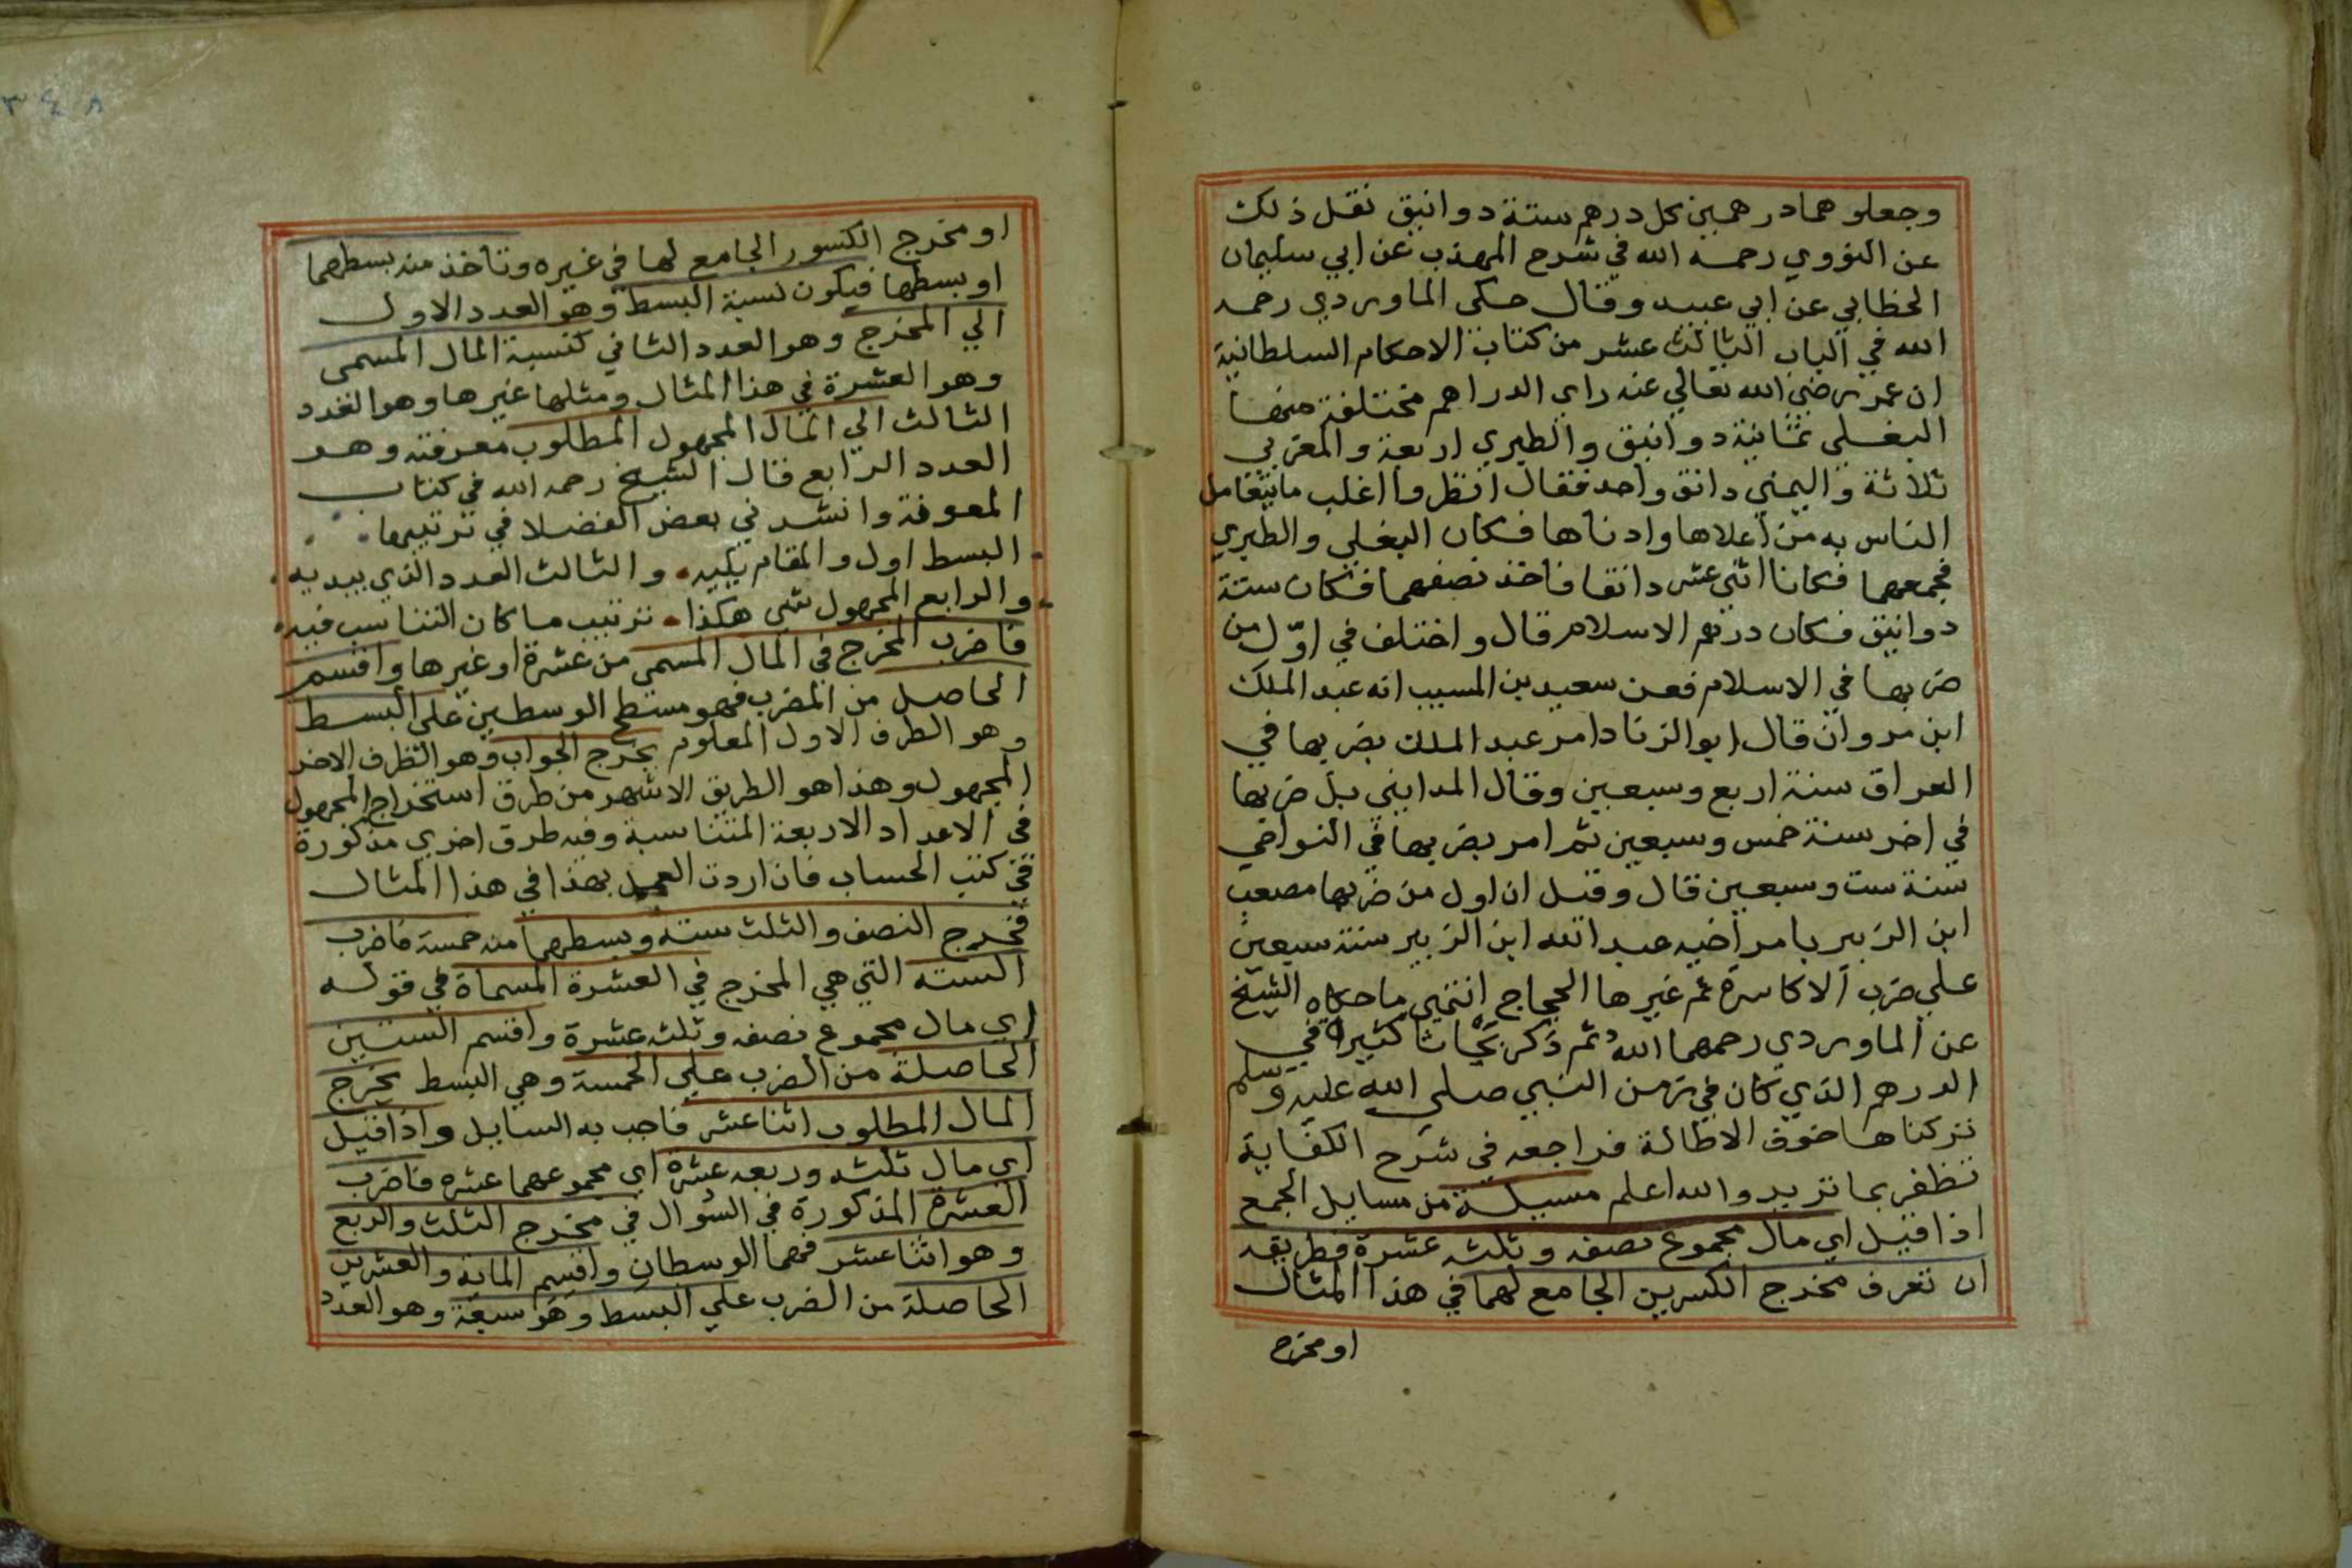 وجعلوهما درهمين كل درهم ستة دوانيق نقل ذلك
عن النووي رحمه الله في شرح المهذب عن ابي سليمان
الخطابي عن ابي عبيد وقال حكى الماوردي رحمه
الله في الباب الثالث عشر من كتاب الاحكام السلطانية
ان عمر رضي الله تعالي عنه راى الدراهم مختلفة منها
البغلي ثمانية دوانيق والطبري اربعة والمغربي
ثلاثة واليمني دانق واحد فقال انظروا اغلب ما يتعامل
الناس به من اعلاها وادناها فكان البغلي والطبري
فجمعهما فكانا اثني عشر دانقا فاخذ نصفهما فكان ستة
دوانيق فكان درهم الاسلام قال واختلف في اوّل من
ضربها في الاسلام فعن سعيد بن المسيب انه عبد الملك
ابن مروان قال ابو الزناد امر عبد الملك بضربها في
العراق سنة اربع وسبعين وقال المدايني بل ضربها
في اخر سنة خمس وسبعين ثم امر بضربها في النواحي
سنة ست وسبعين قال وقيل ان اول من ضربها مصعب
ابن الزبير بامر اخيه عبد الله ابن الزبير سنة سبعين
علي ضرب الاكاسرة ثم غيرها الحجاج انتهى ما حكاه الشيخ
عن الماوردي رحمهما الله ثم ذكر ابحاثا كثيرة في
الدرهم الذي كان في زمن النبي صلي الله عليه وسلم
تركناها خوف الاطالة فراجعه في شرح الكفاية
تظفر بما تريد والله اعلم مسيلة من مسايل الجمع
اذا قيل اي مال مجموع نصفه وثلثه عشرة فطريقه
ان تعرف مخرج الكسرين الجامع لهما في هذا المثال
او مخرج
٣٤٨
او مخرج الكسور الجامع لها في غيره وتاخذ منه بسطهما
او بسطها فيكون نسبة البسط وهو العدد الاول
الي المخرج وهو العدد الثاني كنسبة المال المسمى
وهو العشرة في هذا المثال ومثلها غيرها وهو العدد
الثالث الي المال المجهول المطلوب معرفته وهو
العدد الرابع قال الشيخ رحمه الله في كتاب
المعونة وانشدني بعض الفضلا في ترتيبها
البسط اول والمقام يليه والثالث العدد الذي يبديه
والرابع المجهول شي هكذا ترتيب ما كان التناسب فيه
فاضرب المخرج في المال المسمى من عشرة او غيرها واقسم
الحاصل من الضرب فهو مسطح الوسطين على البسط
وهو الطرف الاول المعلوم يخرج الجواب وهو الطرف الاخر
المجهول وهذا هو الطريق الاشهر من طرق استخراج المجهول
في الاعداد الاربعة المتناسبة وفيه طرق اخري مذكورة
في كتب الحساب فان اردت العمل بهذا في هذا المثال
فمخرج النصف والثلث ستة وبسطهما منه خمسة فاضرب
الستة التي هي المخرج في العشرة المسماة في قوله
اي مال مجموع نصفه وثلثه عشرة واقسم الستين
الحاصلة من الضرب علي الخمسة وهي البسط يخرج
المال المطلوب اثنا عشر فاجب به السايل واذا قيل
اي مال ثلثه وربعه عشرة اي مجموعهما عشره فاضرب
العشرة المذكورة في السوال في مخرج الثلث والربع
وهو اثنا عشر فهما الوسطان واقسم الماية والعشرين
الحاصلة من الضرب علي البسط وهو سبعة وهو العدد